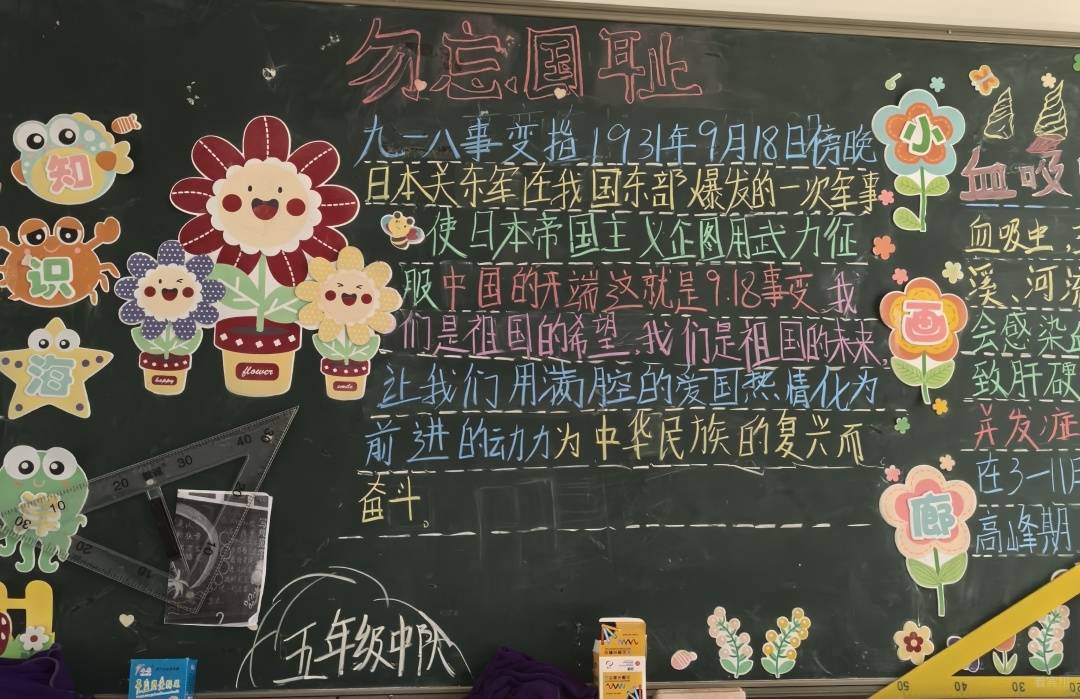 勿忘国耻
九一八事变指1931年9月18日傍晚
日本关东军在我国东部爆发的一次军事
使日本帝国主义企图用武力征
服中国的开端这就是9.18事变.我
们是祖国的希望.我们是祖国的未来,
让我们用满腔的爱国热情化为
前进的动力力为中华民族的复兴而
奋斗。
五年级中队
知
识
海
happy
flower
smile
小
画
廊
血吸
血吸虫,
溪、河流
会感染血
致肝硬
并发症
在3—11月
高峰期
40
30
20
10
20
10
50
40
30
20